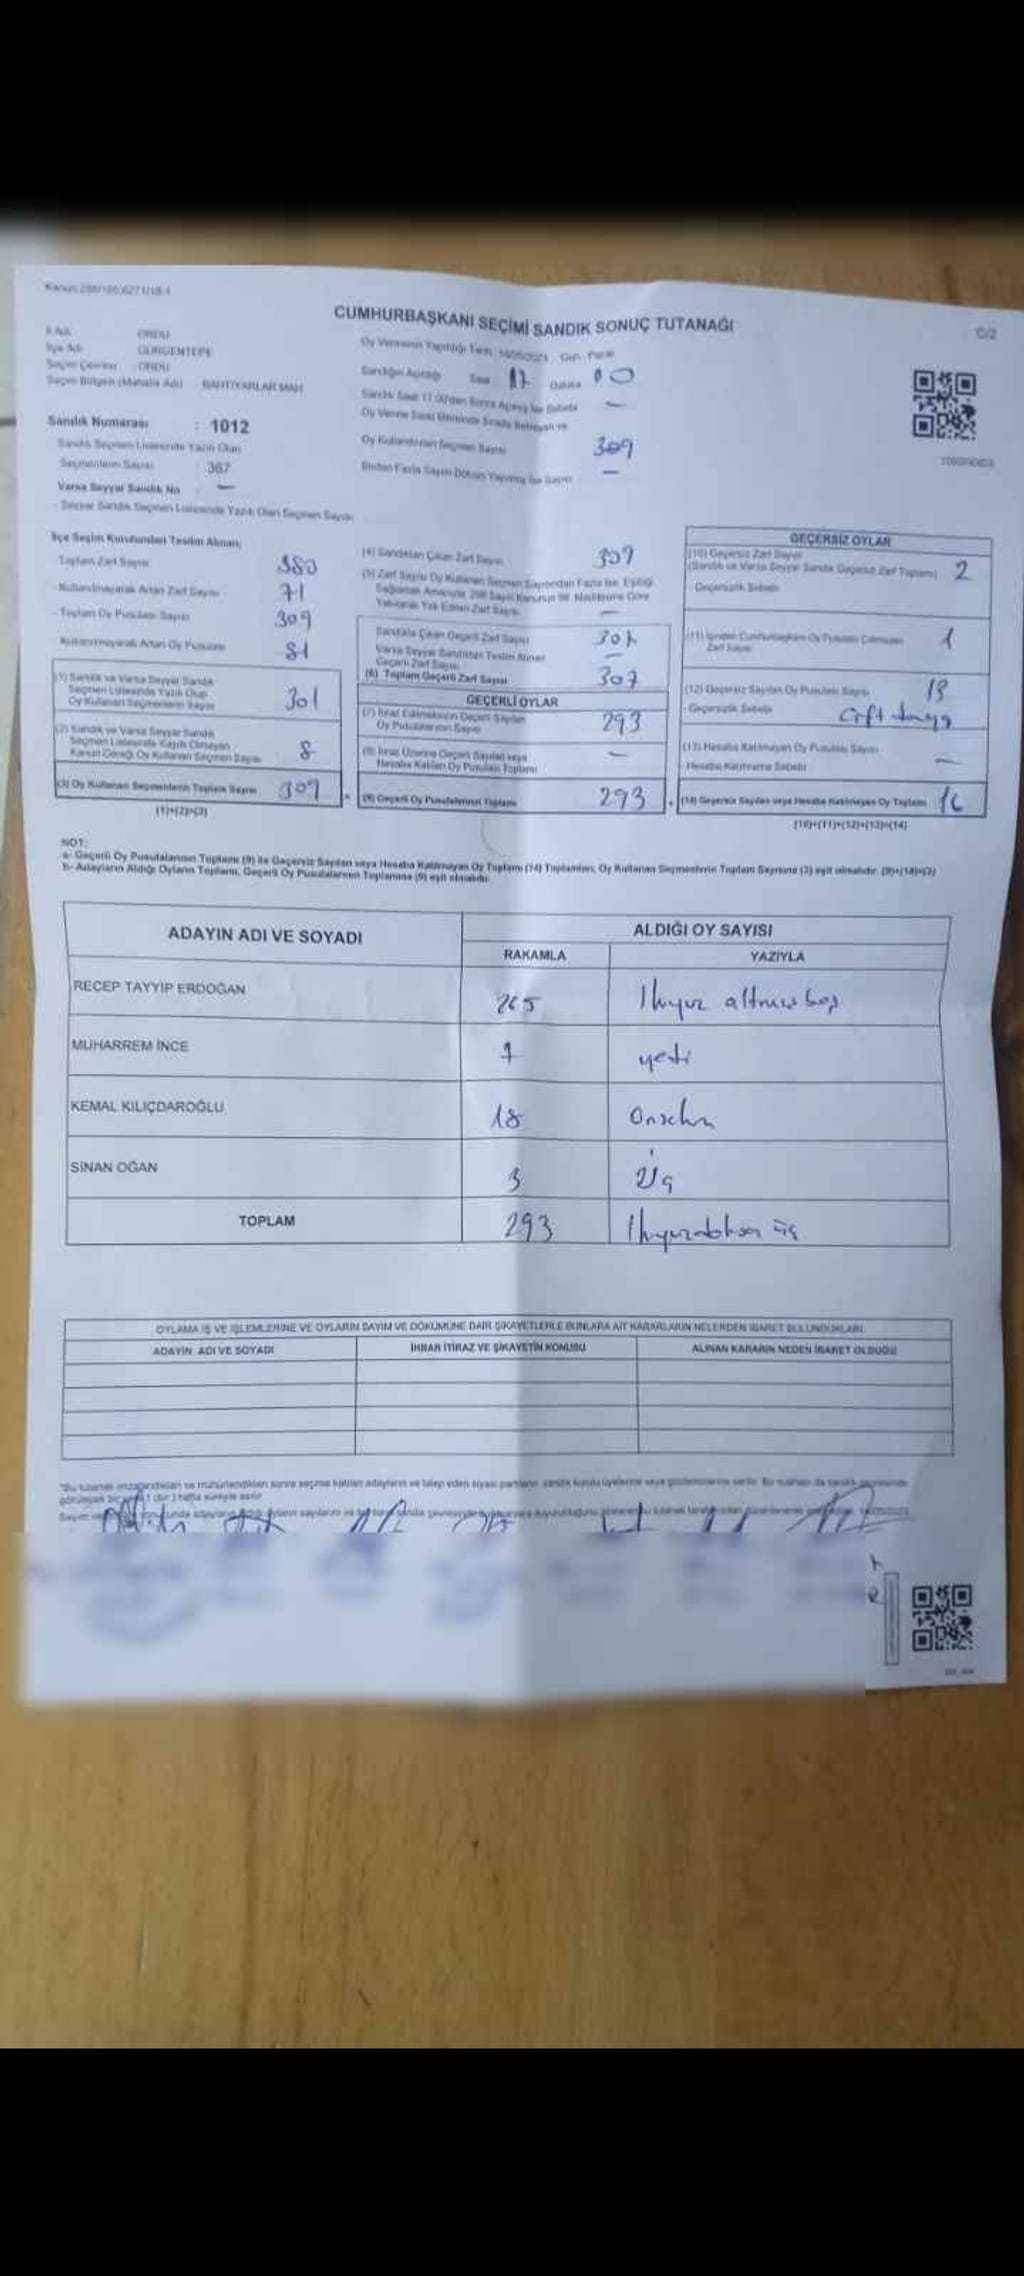 CUMHURBAŞKANI SEÇİMİ SANDIK SONUÇ TUTANAĞI
C/2
İl Adı ORDU
İlçe Adı GÜRGENTEPE
Seçim Çevresi : ORDU
Seçim Bölgesi (Mahalle Adı) : BAHTİYARLAR MAH
Oy Vermenin Yapıldığı Tarih Gün Pazar
Sandığın Açıldığı Saat 17 Dakika 00
Sandık Saat 17.00'den Sonra Açılmış İse Sebebi —
Sandık Numarası : 1012
Sandık Seçmen Listesinde Yazılı Olan
Seçmenlerin Sayısı : 367
Varsa Seyyar Sandık No : —
- Seyyar Sandık Seçmen Listesinde Yazılı Olan Seçmen Sayısı
Oy Kullandırılan Seçmen Sayısı 309
Birden Fazla Sayım Döküm Yapılmış İse Sayısı —
İlçe Seçim Kurulundan Teslim Alınan;
Toplam Zarf Sayısı 380
- Kullanılmayarak Artan Zarf Sayısı 71
- Toplam Oy Pusulası Sayısı 309
- Kullanılmayarak Artan Oy Pusulası 81
(1) Sandık ve Varsa Seyyar Sandık
Seçmen Listesinde Yazılı Olup
Oy Kullanan Seçmenlerin Sayısı 301
(2) Sandık ve Varsa Seyyar Sandık
Seçmen Listesinde Kayıtlı Olmayan
Kanun Gereği Oy Kullanan Seçmen Sayısı 8
(3) Oy Kullanan Seçmenlerin Toplam Sayısı 309
(1)+(2)=(3)
(4) Sandıktan Çıkan Zarf Sayısı 309
(5) Zarf Sayısı Oy Kullanan Seçmen Sayısından Fazla İse, Eşitliği
Sağlamak Amacıyla, 298 Sayılı Kanunun 98. Maddesine Göre
Yakılarak Yok Edilen Zarf Sayısı —
Sandıkta Çıkan Geçerli Zarf Sayısı 307
Varsa Seyyar Sandıktan Teslim Alınan
Geçerli Zarf Sayısı —
(6) Toplam Geçerli Zarf Sayısı 307
GEÇERLİ OYLAR
(7) İtiraz Edilmeksizin Geçerli Sayılan
Oy Pusulalarının Sayısı 293
(8) İtiraz Üzerine Geçerli Sayılan veya
Hesaba Katılan Oy Pusulası Toplamı —
(9) Geçerli Oy Pusulalarının Toplamı 293
GEÇERSİZ OYLAR
(10) Geçersiz Zarf Sayısı
(Sandık ve Varsa Seyyar Sandık Geçersiz Zarf Toplamı) 2
- Geçersizlik Sebebi
(11) İçinden Cumhurbaşkanı Oy Pusulası Çıkmayan
Zarf Sayısı 1
(12) Geçersiz Sayılan Oy Pusulası Sayısı 13
- Geçersizlik Sebebi Çift damga
(13) Hesaba Katılmayan Oy Pusulası Sayısı
- Hesaba Katılmama Sebebi —
(14) Geçersiz Sayılan veya Hesaba Katılmayan Oy Toplamı 16
(10)+(11)+(12)+(13)=(14)
NOT:
a- Geçerli Oy Pusulalarının Toplamı (9) ile Geçersiz Sayılan veya Hesaba Katılmayan Oy Toplamı (14) Toplamları, Oy Kullanan Seçmenlerin Toplam Sayısına (3) eşit olmalıdır. (9)+(14)=(3)
b- Adayların Aldığı Oyların Toplamı, Geçerli Oy Pusulalarının Toplamına (9) eşit olmalıdır.
ADAYIN ADI VE SOYADI
ALDIĞI OY SAYISI
RAKAMLA YAZIYLA
RECEP TAYYİP ERDOĞAN 265 İkiyüz altmış beş
MUHARREM İNCE 7 yedi
KEMAL KILIÇDAROĞLU 18 Onsekiz
SİNAN OĞAN 3 üç
TOPLAM 293 İkiyüzdoksan üç
OYLAMA İŞ VE İŞLEMLERİNE VE OYLARIN SAYIM VE DÖKÜMÜNE DAİR ŞİKAYETLERLE BUNLARA AİT KARARLARIN NELERDEN İBARET BULUNDUKLARI
ADAYIN ADI VE SOYADI İHBAR İTİRAZ VE ŞİKAYETİN KONUSU ALINAN KARARIN NEDEN İBARET OLDUĞU